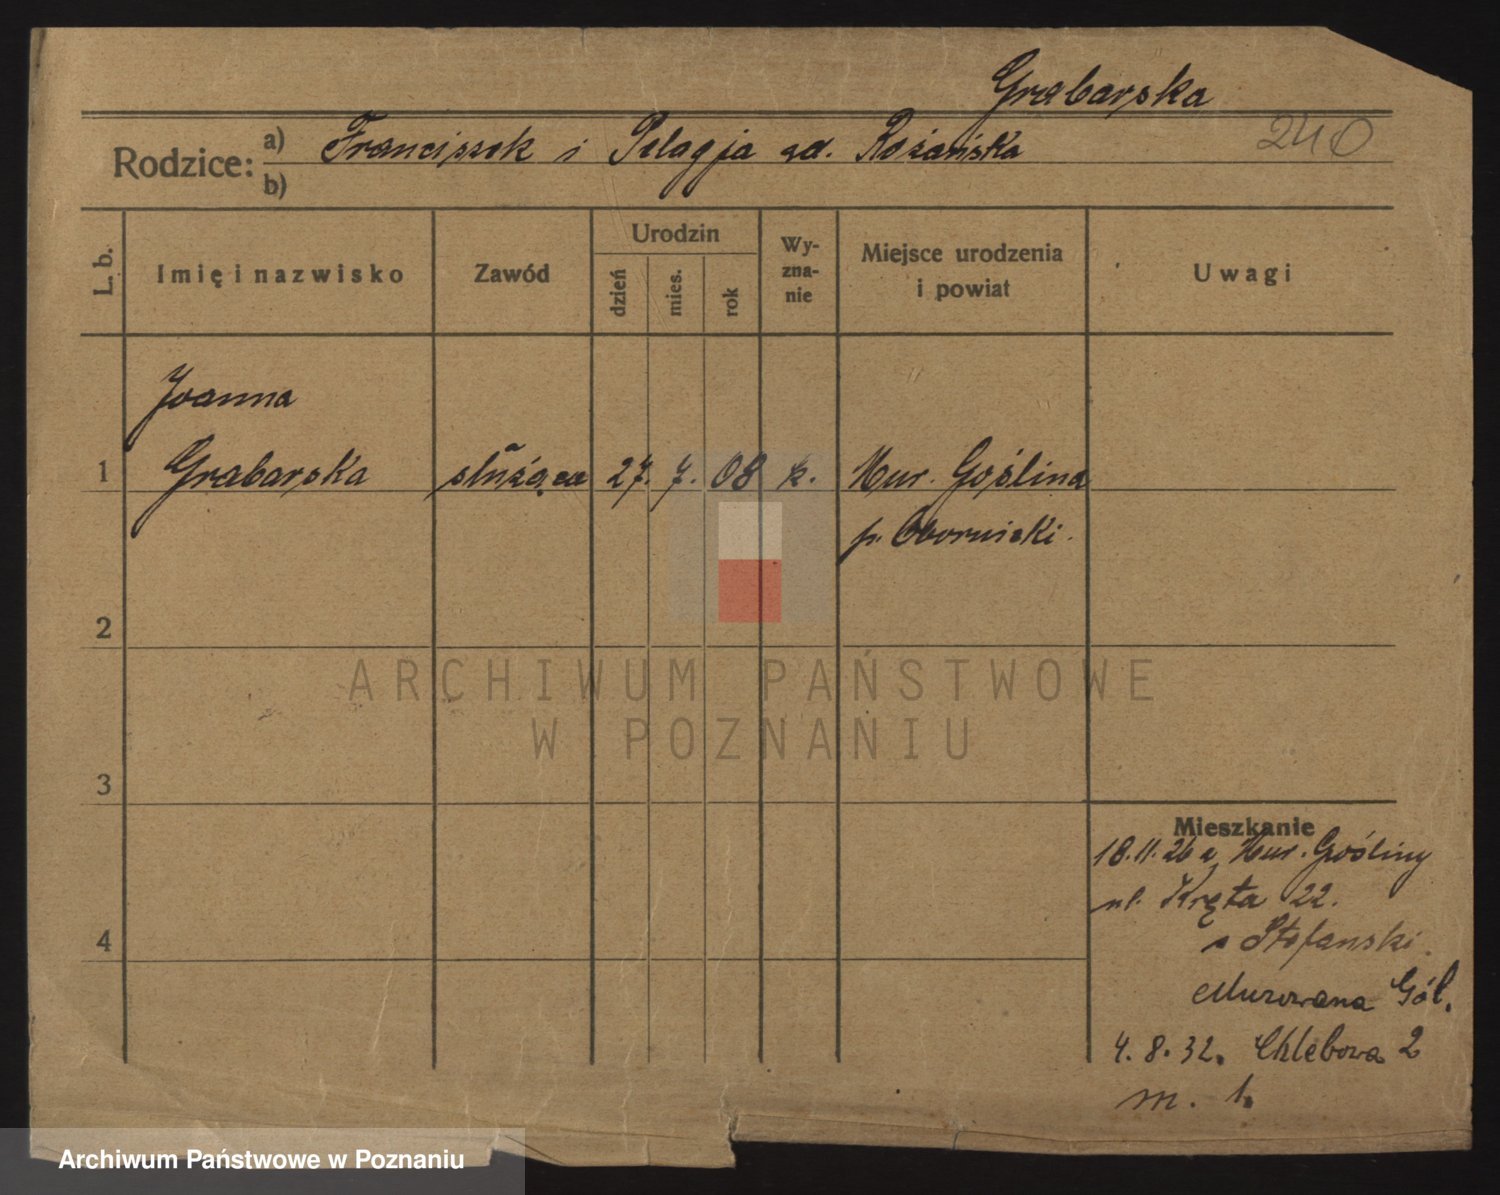 Grabarska
240
Rodzice: a) Franciszek i Pelagja zd. Rożańska
b)
L. b.
Imię i nazwisko
Zawód
Urodzin
dzień
mies.
rok
Wy-
zna-
nie
Miejsce urodzenia
i powiat
Uwagi
Joanna
1 Grabarska służąca 27. 7. 08 k. Mur. Goślina
p. Obornicki.
2
ARCHIWUM PAŃSTWOWE
W POZNANIU
3
Mieszkanie
18.11.26 z Mur. Gośliny
ul. Kręta 22.
4
Stefanski
Murowana Goś.
4. 8. 32. Chlebowa 2
m. 1.
Archiwum Państwowe w Poznaniu